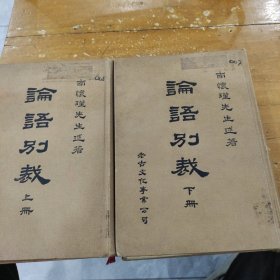 南懷瑾先生述著
論語別裁
上冊
南懷瑾先生述著
論語別裁
下冊
老古文化事業公司